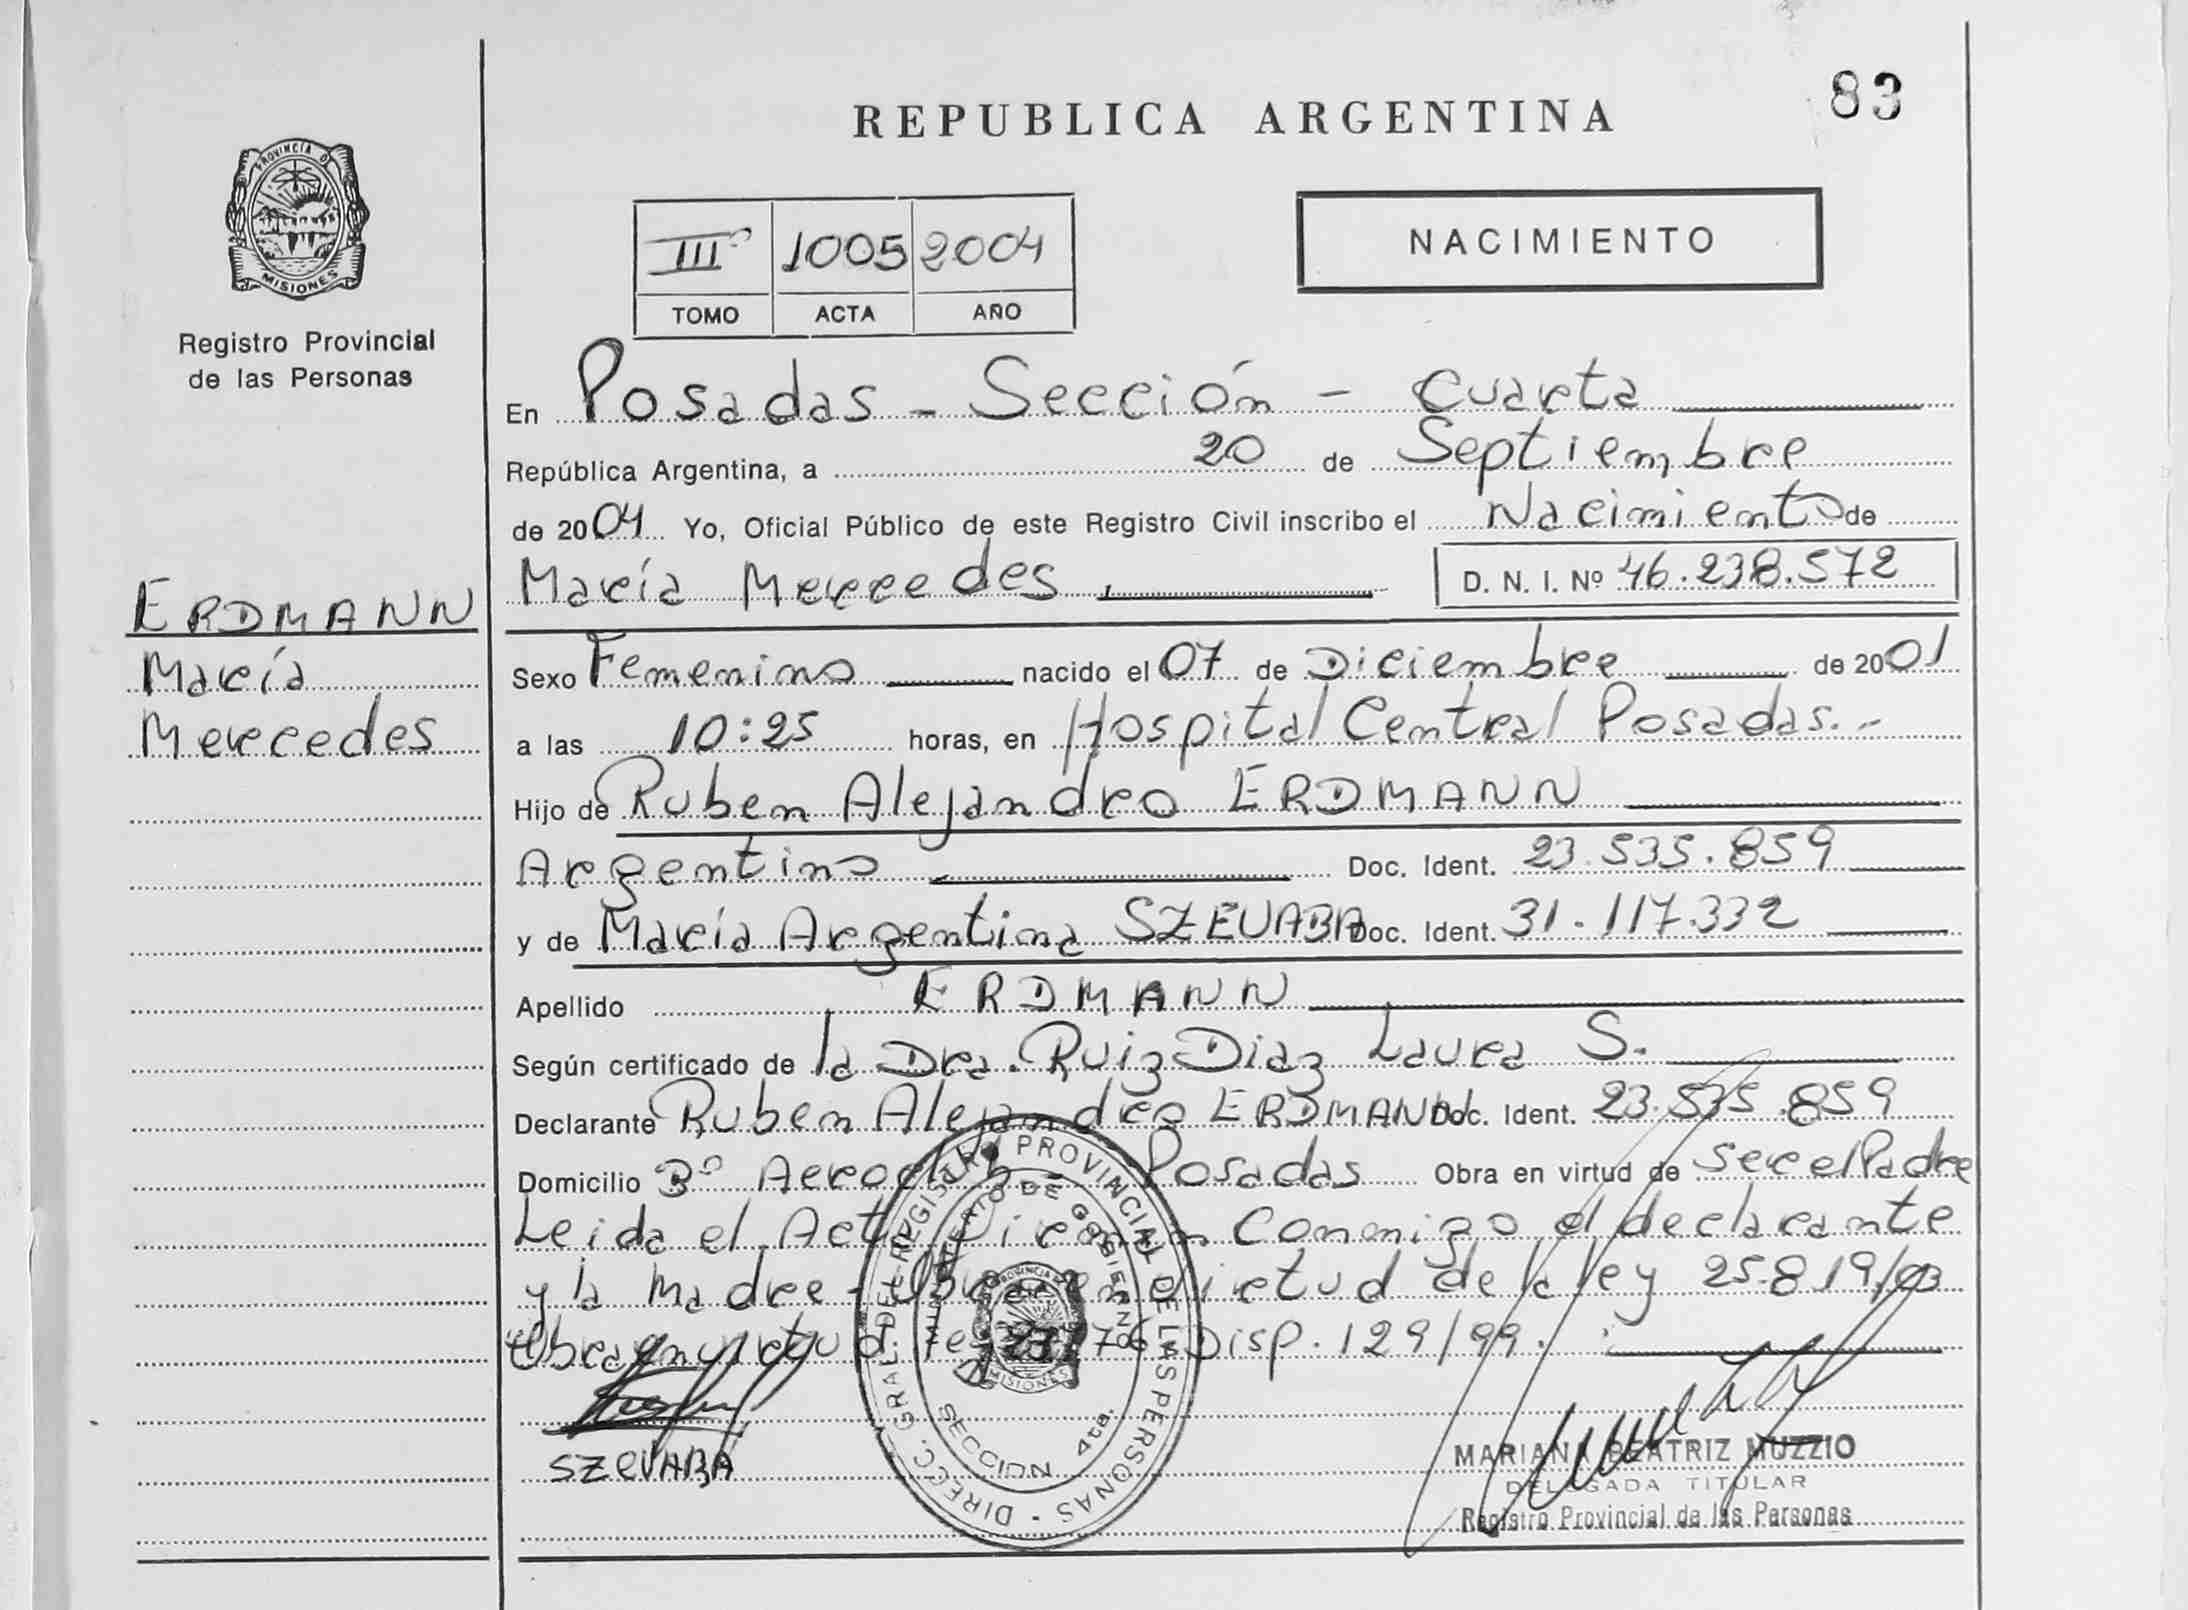 83
REPUBLICA ARGENTINA
PROVINCIA DE
MISIONES
Registro Provincial
de las Personas
NACIMIENTO
IIIº 1005 2004
TOMO ACTA AÑO
En Posadas - Sección - Cuarta
República Argentina, a 20 de Septiembre
de 2004 Yo, Oficial Público de este Registro Civil inscribo el Nacimiento de
María Mercedes, D. N. I. Nº 46.238.572
ERDMANN
María
Mercedes
Sexo Femenino nacido el 07 de Diciembre de 2001
a las 10:25 horas, en Hospital Central Posadas.-
Hijo de Ruben Alejandro ERDMANN
Argentino Doc. Ident. 23.535.859
y de María Argentina SZEVABA Doc. Ident. 31.117.332
Apellido ERDMANN
Según certificado de la Dra. Ruiz Diaz Laura S.
Declarante Ruben Alejandro ERDMANN Doc. Ident. 23.535.859
Domicilio Bº Aeroclub - Posadas Obra en virtud de ser el Padre
Leida el Acta Firman Conmigo el declarante
y la madre - Obra en virtud de la ley 25.819/03
Obra en virtud Disp. 129/99.
SZEVABA
DIRECC. GRAL. DEL REGISTRO PROVINCIAL DE LAS PERSONAS
MINISTERIO DE GOBIERNO
PROVINCIA
MISIONES
SECCION 4ta.
MARIANA BEATRIZ MUZZIO
DELEGADA TITULAR
Registro Provincial de las Personas